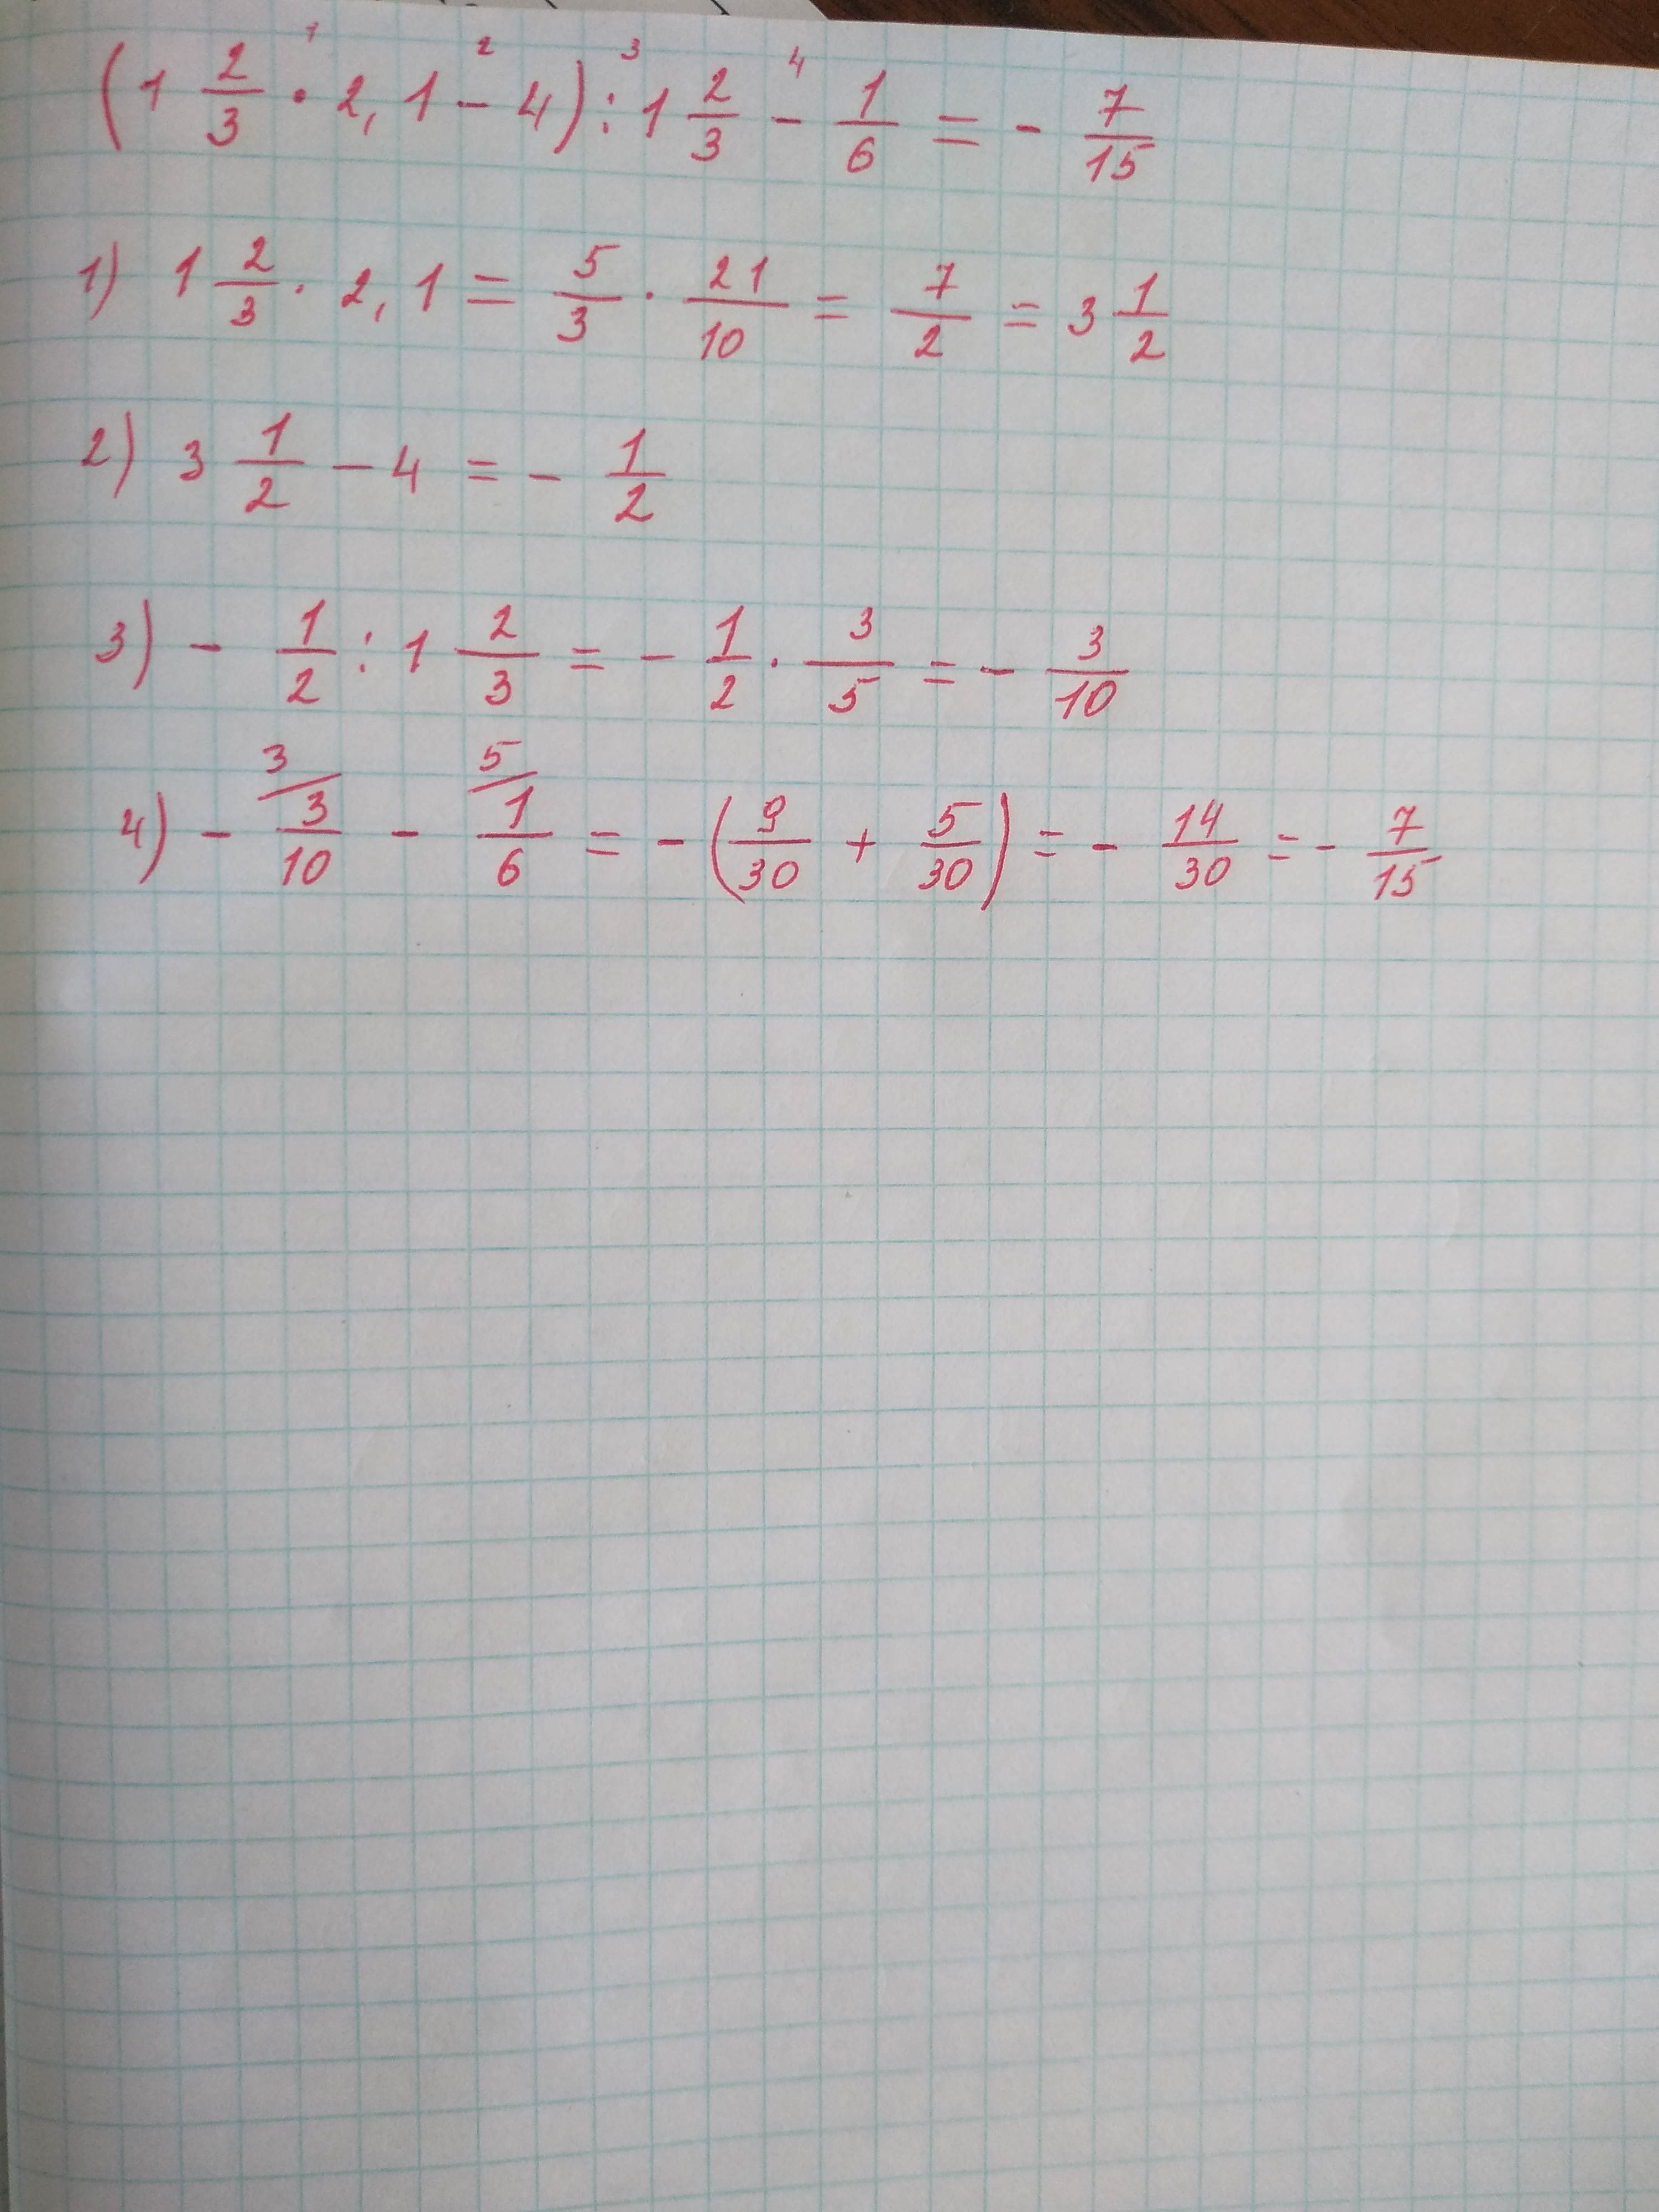 (1 2/3 · 2,1 - 4) : 1 2/3 - 1/6 = - 7/15
1) 1 2/3 · 2,1 = 5/3 · 21/10 = 7/2 = 3 1/2
2) 3 1/2 - 4 = - 1/2
3) - 1/2 : 1 2/3 = - 1/2 · 3/5 = - 3/10
4) - 3/ 3/10 - 5/ 1/6 = - (9/30 + 5/30) = - 14/30 = - 7/15